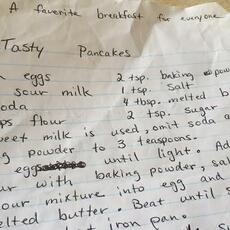 A favorite breakfast for everyone
Tasty Pancakes
eggs 2 tsp. baking pow
sour milk 1 tsp. salt
oda 4 tbsp. melted b
ps flour 2 tsp. sugar
eet milk is used, omit soda a
g powder to 3 teaspoons.
egg until light. Ad
ur with baking powder, sal
our mixture into egg and
elted butter. Beat until s
t iron pan.